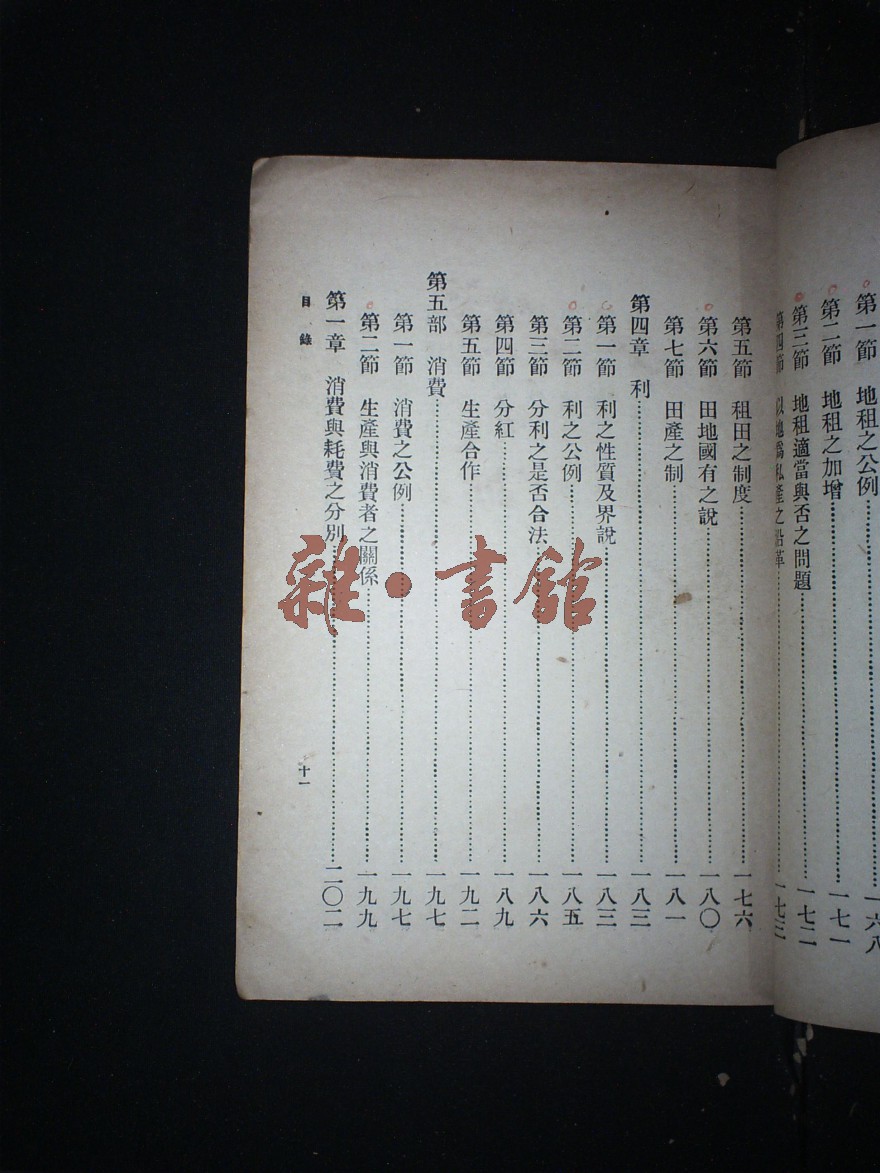 第一節 地租之公例 一六八
第二節 地租之加增 一七一
第三節 地租適當與否之問題 一七二
第四節 以地爲私產之沿革 一七三
第五節 租田之制度 一七六
第六節 田地國有之說 一八〇
第七節 田產之制 一八一
第四章 利 一八三
第一節 利之性質及界說 一八三
第二節 利之公例 一八五
第三節 分利之是否合法 一八六
第四節 分紅 一八九
第五節 生產合作 一九二
第五部 消費 一九七
第一節 消費之公例 一九七
第二節 生產與消費者之關係 一九九
第一章 消費與耗費之分別 二〇二
目錄 十一
雜·書館